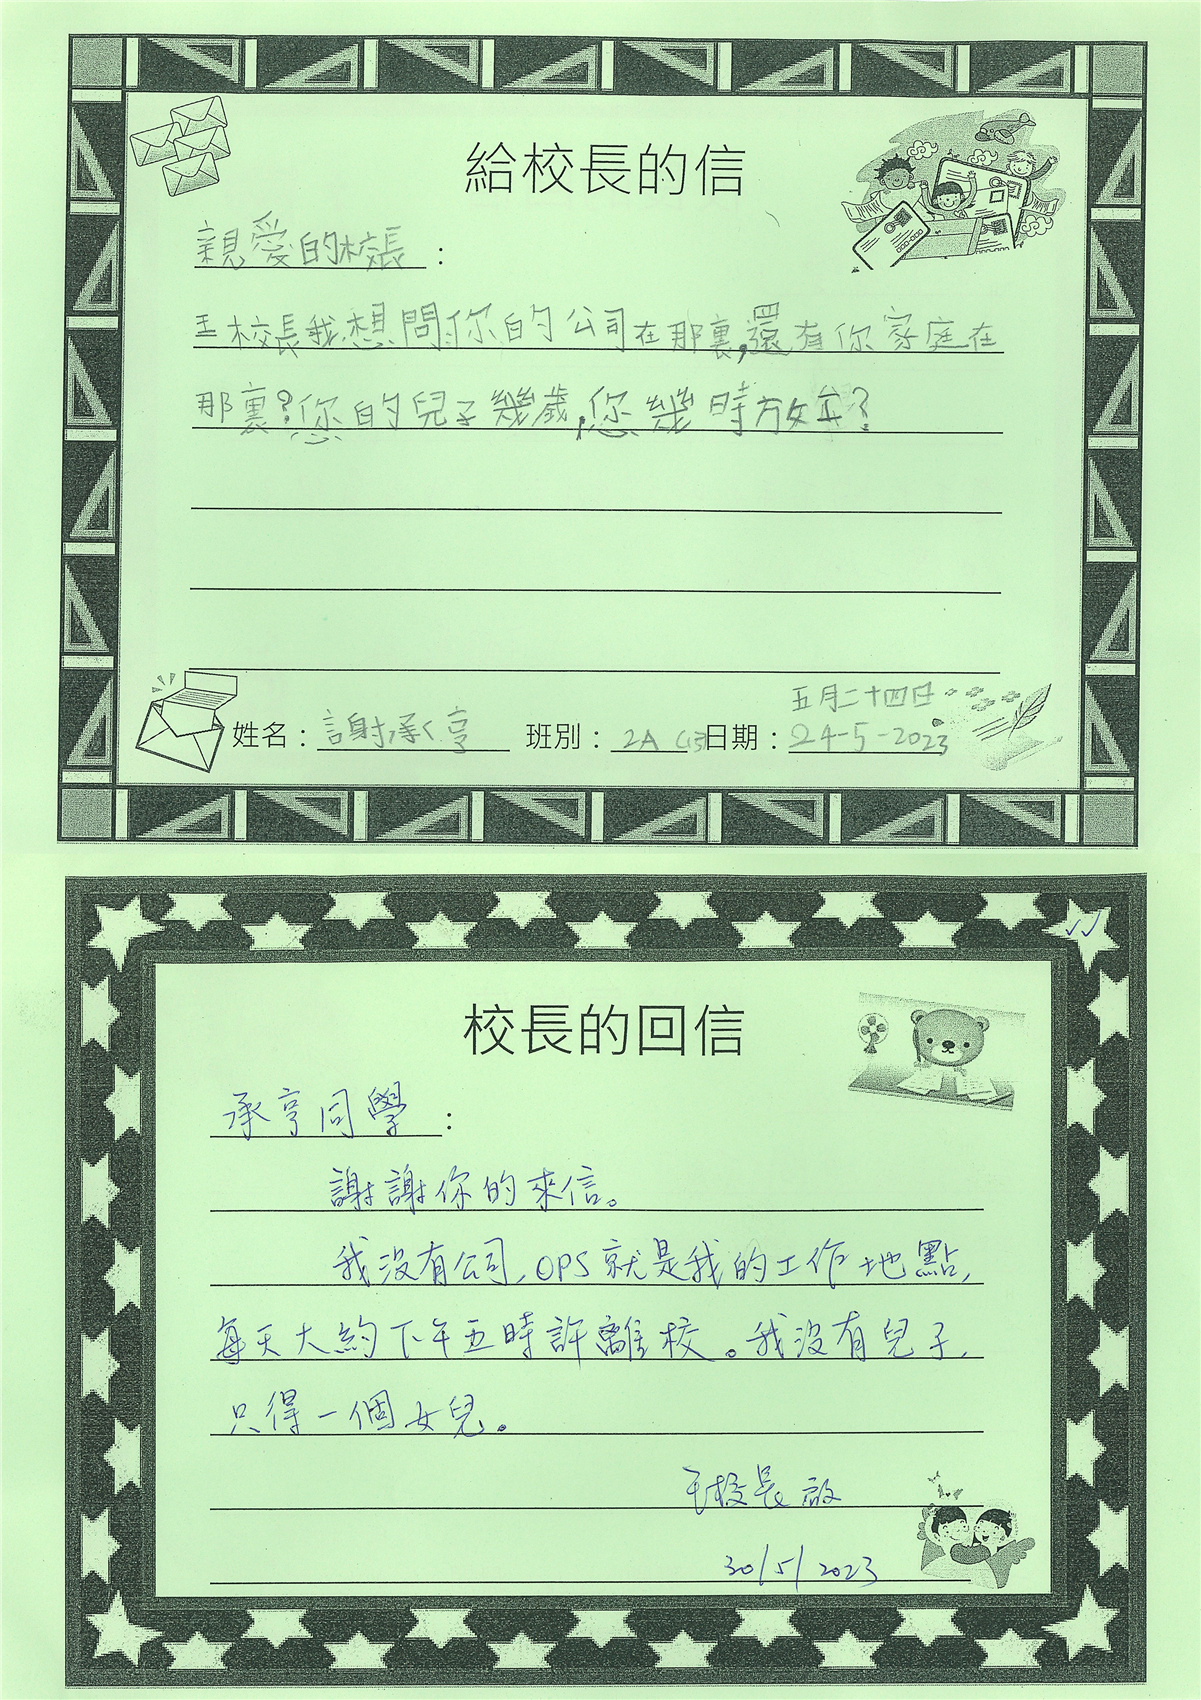 給校長的信
親愛的校長：
王校長我想問你的公司在那裏,還有你家庭在
那裏?您的兒子幾歲,您幾時放工?
五月二十四日
姓名：謝承亨 班別：2A (13) 日期：24-5-2023
校長的回信
承亨同學：
謝謝你的來信。
我沒有公司,OPS就是我的工作地點,
每天大約下午五時許離校。我沒有兒子,
只得一個女兒。
王校長 啟
30/5/2023